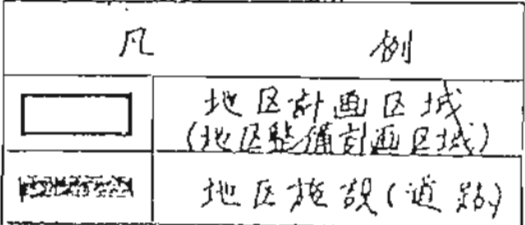 凡例
地区計画区域
(地区整備計画区域)
地区施設(道路)